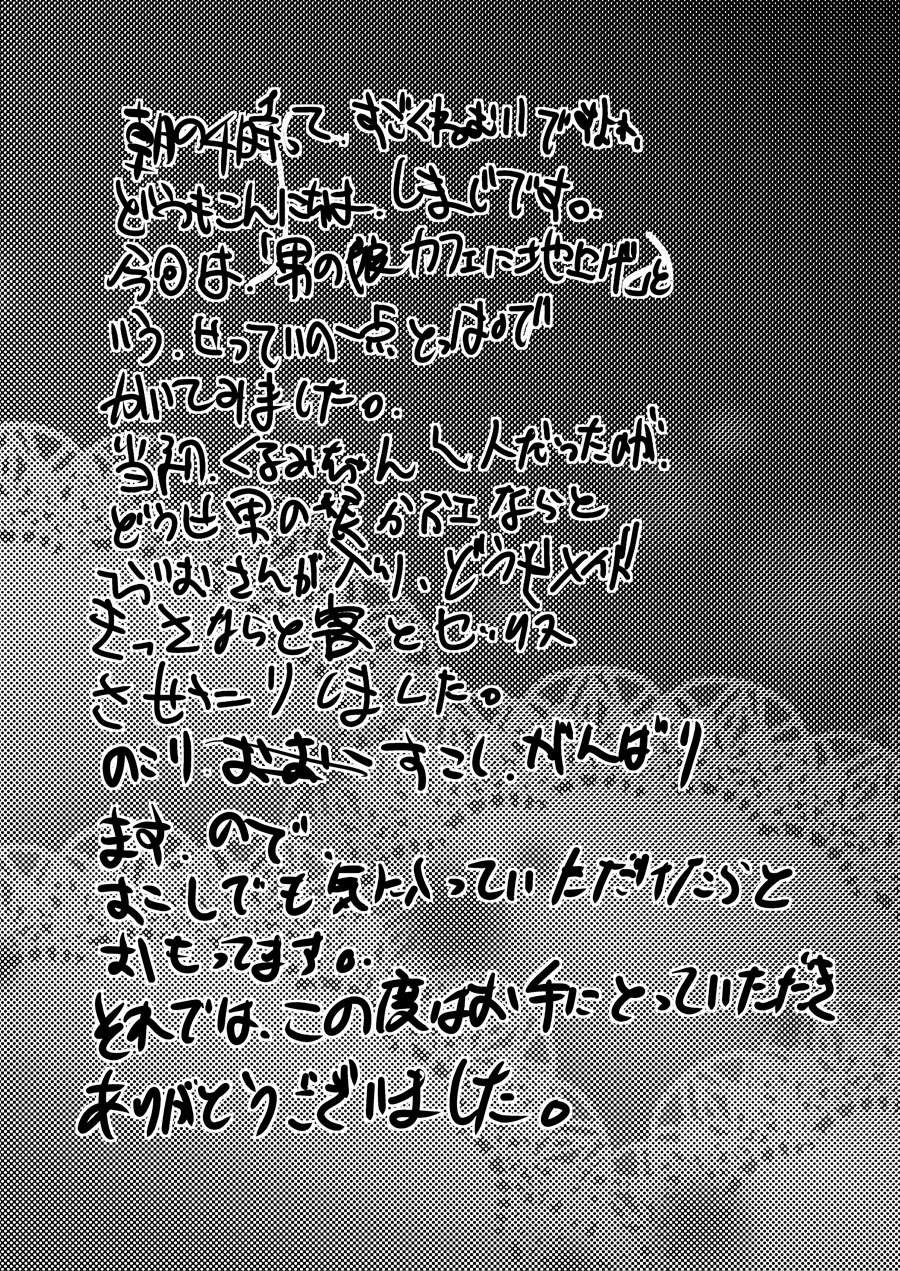 朝の4時って、すごくねむいですよね、
どうもこんにちは、しまじです。
今回は、「男の娘カフェに地上げ」と
いう、せっていの一点とっぱで
かいてみました。
当初、くるみちゃん1人だったのが、
どうせ男の娘かふェならと
さんが入り、どうせメイド
きっさならと客とセックス
させたりしましました。
のこり すこし、がんばり
ます。ので、
すこしでも気に入っていただけたらと
おもってます。
それでは、この度はお手にとっていただき
ありがとうございました。